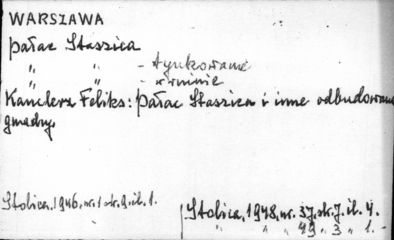 WARSZAWA
pałac Staszica
" " - tynkowanie
" " - w ruinie
Kanclerz Feliks: Pałac Staszica i inne odbudowane
gmachy.
Stolica. 1946. nr. 1 str. 9. il. 1.
Stolica. 1948. nr. 37. str. 7. il. 4.
" " " 49 " 3 " 1. -